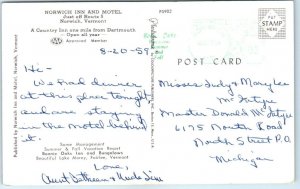 NORWICH INN AND MOTEL
Just off Route 5
Norwich, Vermont
A Country Inn one mile from Dartmouth
Open all year
AAA Approved Member
8-20-59
Hi -
We had dinner
at this place tonight
and are staying
in the Motel behind
it.
Same Management
Summer & Fall Vacation Resort
Bonnie Oaks Inn and Bungalows
Beautiful Lake Morey, Fairlee, Vermont
Love,
Aunt Kathleen & Uncle Jim
Published by Norwich Inn and Motel, Norwich, Vermont
POST CARD
PLACE
STAMP
HERE
Misses Judy & Mary Lee
McIntyre
Master Donald McIntyre
6175 North Road
North Street P.O.
Michigan